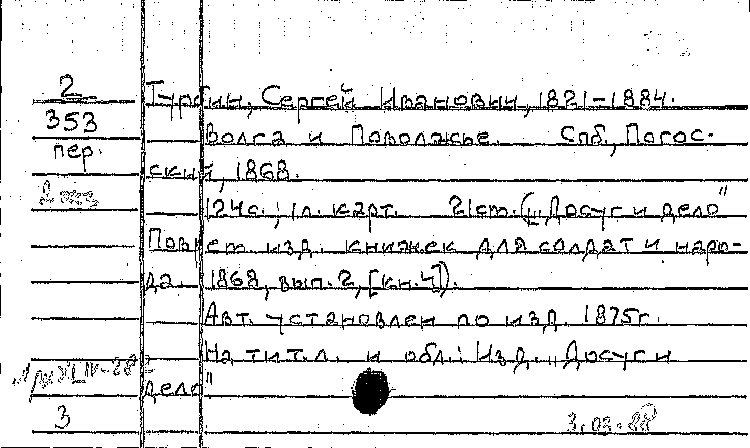 2
353
пер.
2 экз
Турбин, Сергей Иванович, 1821-1884.
Волга и Поволжье. Спб, Погос-
ский, 1868.
124с.; 1л. карт. 21см. („Досуг и дело"
Повр ст. изд. книжек для солдат и наро-
да. 1868, вып. 2, [кн. 4]).
Авт. установлен по изд. 1875г.
На тит. л. и обл.: Изд. „Досуг и
дело"
3
3.03.88